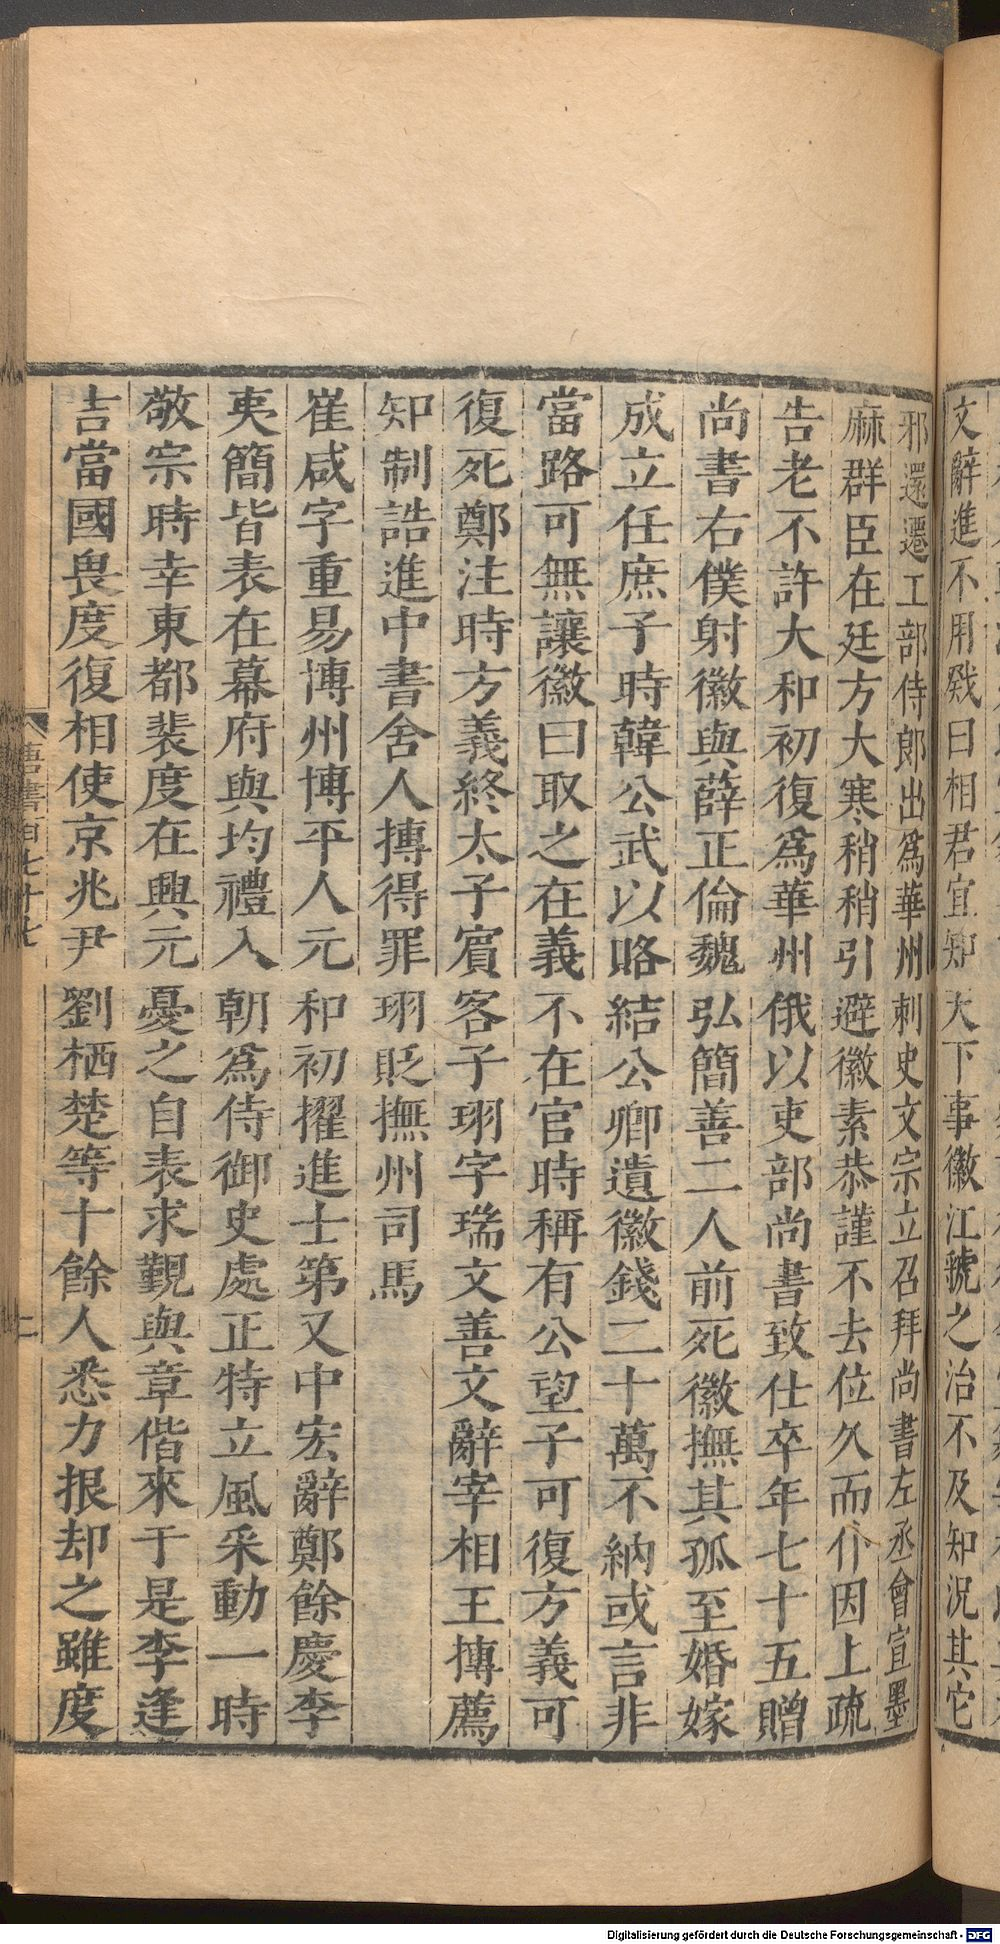 文辭進不用戣曰相君宜知天下事徽江虢之治不及知況其它
邪還遷工部侍郎出爲華州刺史文宗立召拜尚書左丞會宣墨
麻群臣在廷方大寒稍稍引避徽素恭謹不去位久而仆因上疏
告老不許大和初復爲華州俄以吏部尚書致仕卒年七十五贈
尚書右僕射徽與薛正倫魏弘簡善二人前死徽撫其孤至婚嫁
成立任庶子時韓公武以賂結公卿遺徽錢二十萬不納或言非
當路可無讓徽曰取之在義不在官時稱有公望子可復方義可
復死鄭注時方義終太子賓客子珝字瑞文善文辭宰相王摶薦
知制誥進中書舍人摶得罪珝貶撫州司馬
崔咸字重易博州博平人元和初擢進士第又中宏辭鄭餘慶李
夷簡皆表在幕府與均禮入朝爲侍御史處正特立風采動一時
敬宗時幸東都裴度在興元憂之自表求覲與章偕來于是李逢
吉當國畏度復相使京兆尹劉栖楚等十餘人悉力拫却之雖度
唐書百七十七
Digitalisierung gefördert durch die Deutsche Forschungsgemeinschaft - DFG